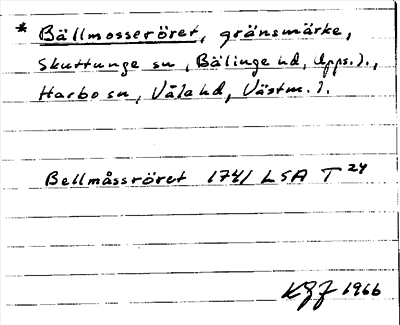 * Bällmosseröret, gränsmärke,
Skuttunge sn, Bälinge hd, Upps.l.,
Harbo sn, Våla hd, Västm. l.
Bellmåssröret 1741 LSA T 24
KGJ 1966